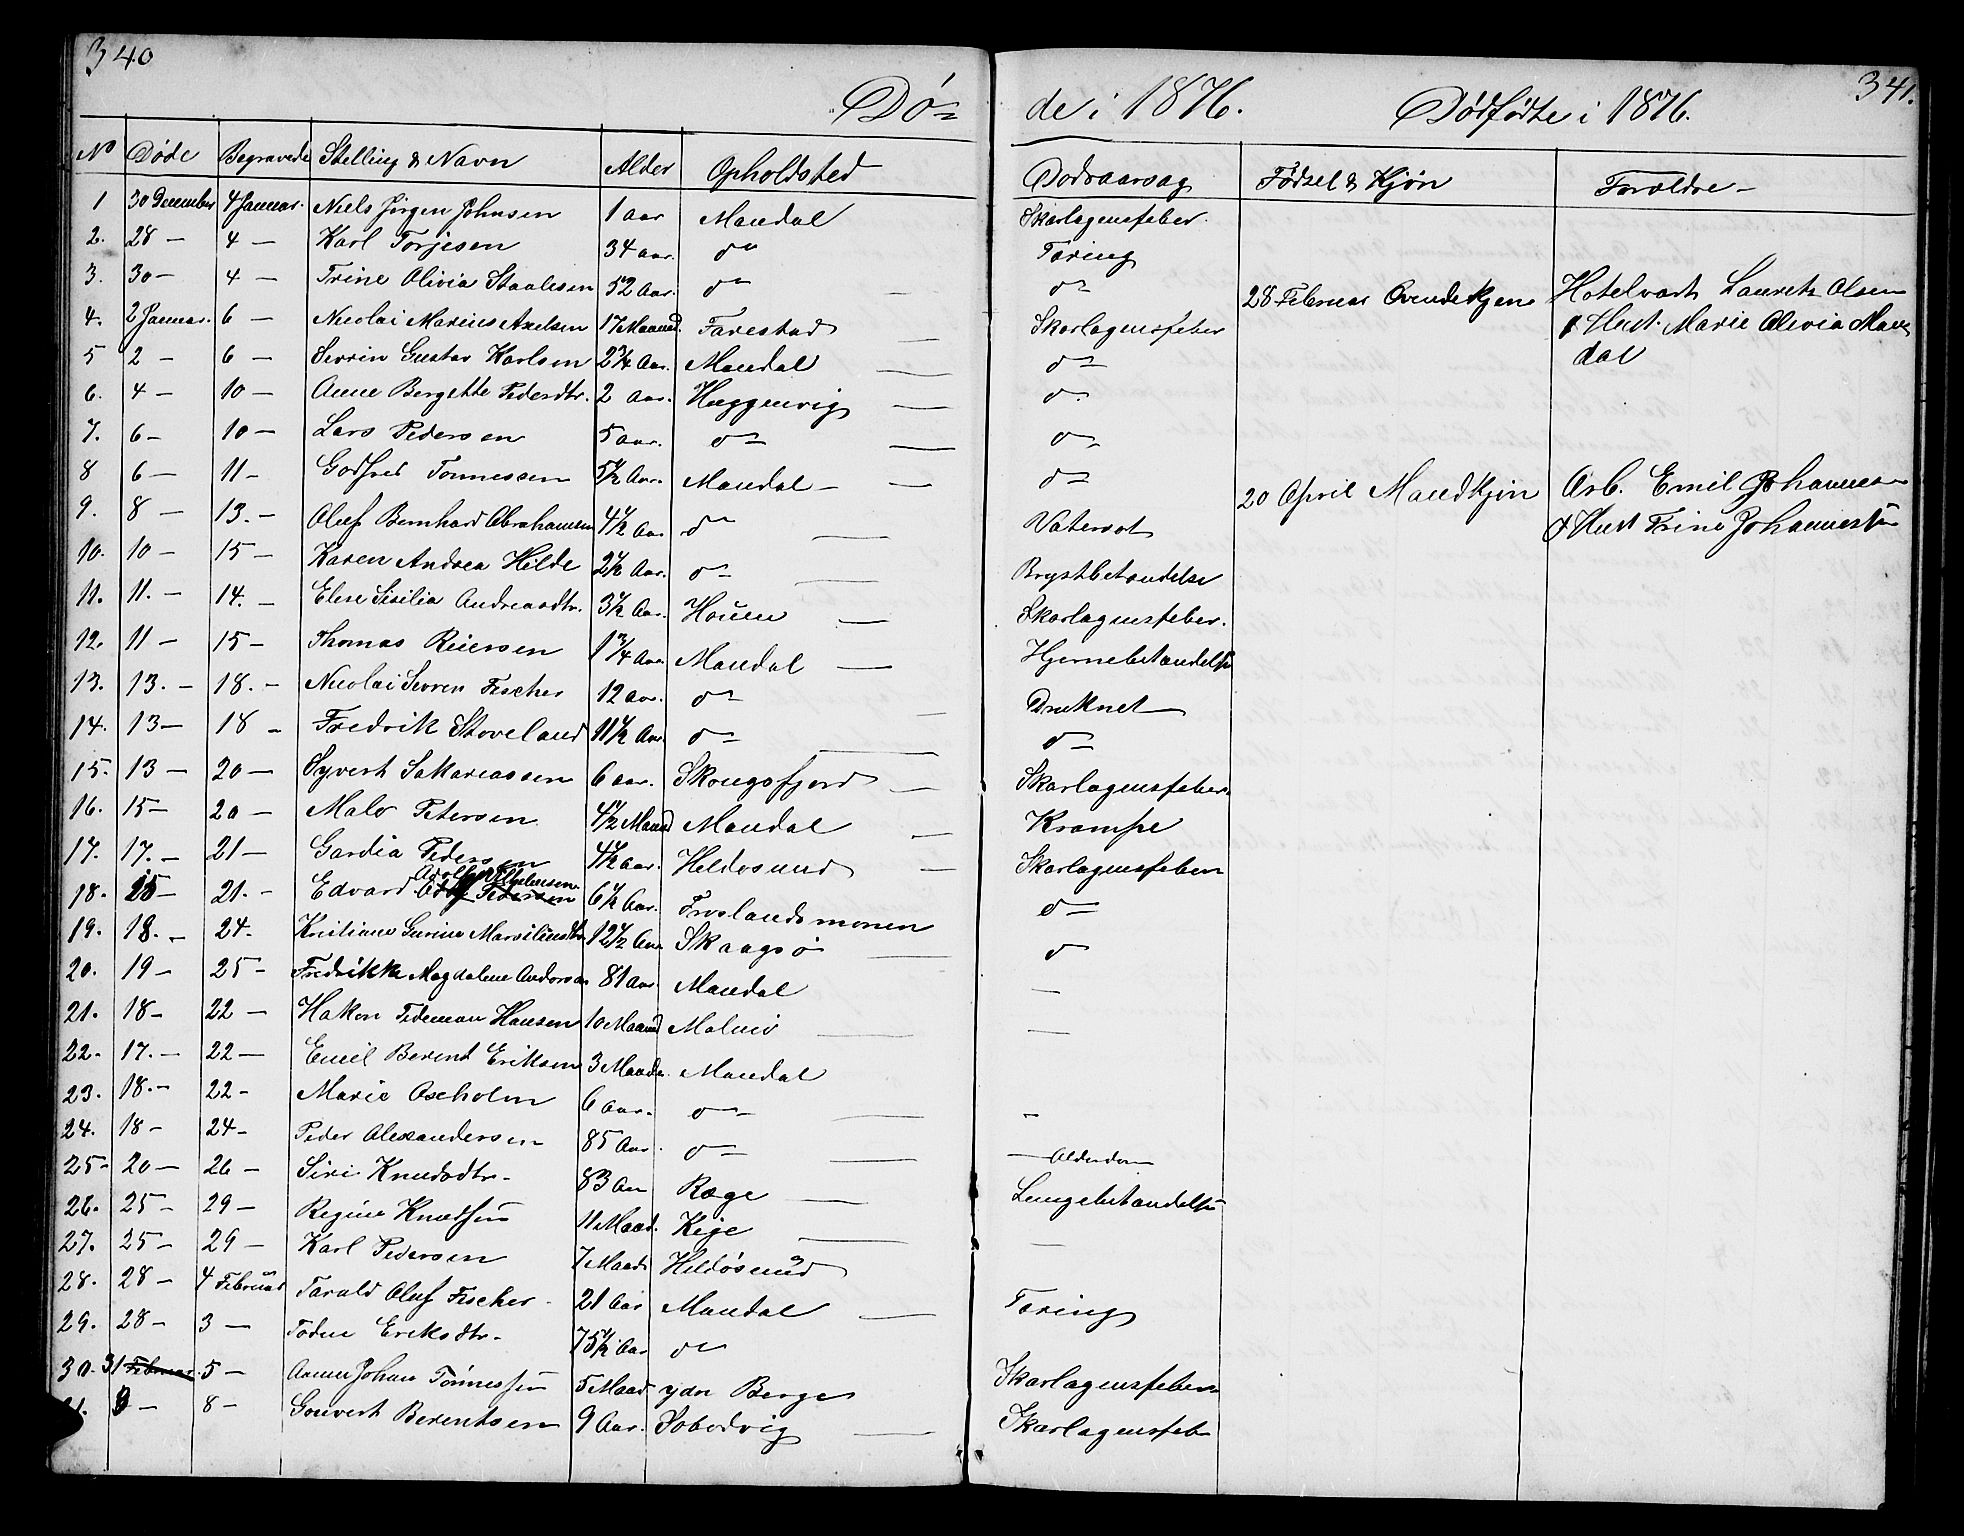 340
341.
Dø=
de i 1876.
Dødfødte i 1876.
No Døde Begravede Stelling & Navn Alder Opholdsted Dødsaarsag Fødsel & Kjøn Forældre —
1 30 December 4 Januar. Niels Jørgen Johnsen 1 Aar Mandal Skarlagensfeber.
2. 28 — 4 — Karl Torjesen 34 aar. do Tæring
3. 30 — 4 — Trine Olivia Staalesen 52 Aar. do — do
28 Februar Qvindekjøn Hotelvært Lauretz Olsen
& Hust. Marie Olivia Man=
dal
4. 2 Januar. 6 — Nicolai Marius Axelsen 17 Maaned. Farestad — Skarlagensfeber
5 2 — 6 — Serrin Gustav Karlsen 2 3/4 Aar. Mandal — do
6. 4 — 10 — Anne Bergette Pedersdtr. 2 Aar. Haggenvig — do
7. 6 — 10 — Lars Pedersen 5 aar. do — do
8 6 — 11 — Godfred Tønnessen 5 1/2 Aar. Mandal — do
20 April Mandkjøn Arb. Emil Johannesen
& Hust Trine Johannessen
9. 8 — 13. — Oluf Bernhard Abrahamsen 4 1/2 Aar do — Vatersot
10. 10 — 15 — Karen Andrea Hilde 2 1/2 Aar. do — Brystbetændelse
11. 11. — 14. — Elene Sisilia Andreasdtr. 3 1/2 Aar. Houen — Skarlagensfeber.
12. 11 — 15 — Thomas Reiersen 1 3/4 Aar Mandal — Hjernebetændelse
13. 13. — 18. — Nicolai Serren Fischer 12 Aar. do — Druknet
14. 13 — 18 — Fredrik Støveland 11 1/2 Aar. do — do
15. 13 — 20 — Syvert Sakariassen 6 aar. Skougsfjord — Skarlagensfeber.
16. 15 — 20 — Malv Petersen 4 1/2 Maaned Mandal — Krampe
17. 17. — 21 — Gardia Pedersen 4 1/2 aar. Heldøsund — Skarlagensfeber
18. 15 — 21. — Edvard Adolf 6 1/2 Aar. Frøslandsmonen do
19. 18. — 24. Kristiane Gurine Marsiliusdtr 12 1/2 Aar Skaagsø — do
20. 19 — 25 — Fredrikke Magdalene Andersen 81 aar. Mandal —
21. 18 — 22 — Hakon Tideman Hansen 10 Maaned Malmø — —
22. 17. — 22 — Emil Berent Eriksen 3 Maaneder. Mandal
23. 18. — 22 — Marie Oxholm 6 aar. do — —
24. 18 — 24 — Peder Alexandersen 85 Aar. do — — Alderdom
25 — 20 — 26 — Siri Knudsdtr. 83 Aar Ræge — Lungebetændelse
26. 25 — 29 — Regine Knudsen 11 Maad. Kige —
27. 25 — 29 — Karl Pedersen 7 Maad. Heldøsund
28. 28 — 4 Februar Tarald Oluf Fischer. 21 Aar Mandal — Tæring
29. 28 — 3 — Toden Eriksdtr. 75 1/2 Aar do
30. 31 Februar. 5 — Anne Johan Tønnessen 5 Maad ydre Berge Skarlagensfeber
9 — 8 — Gouvert Berentsen 9 Aar. Søbodvig — Skarlagensfeb